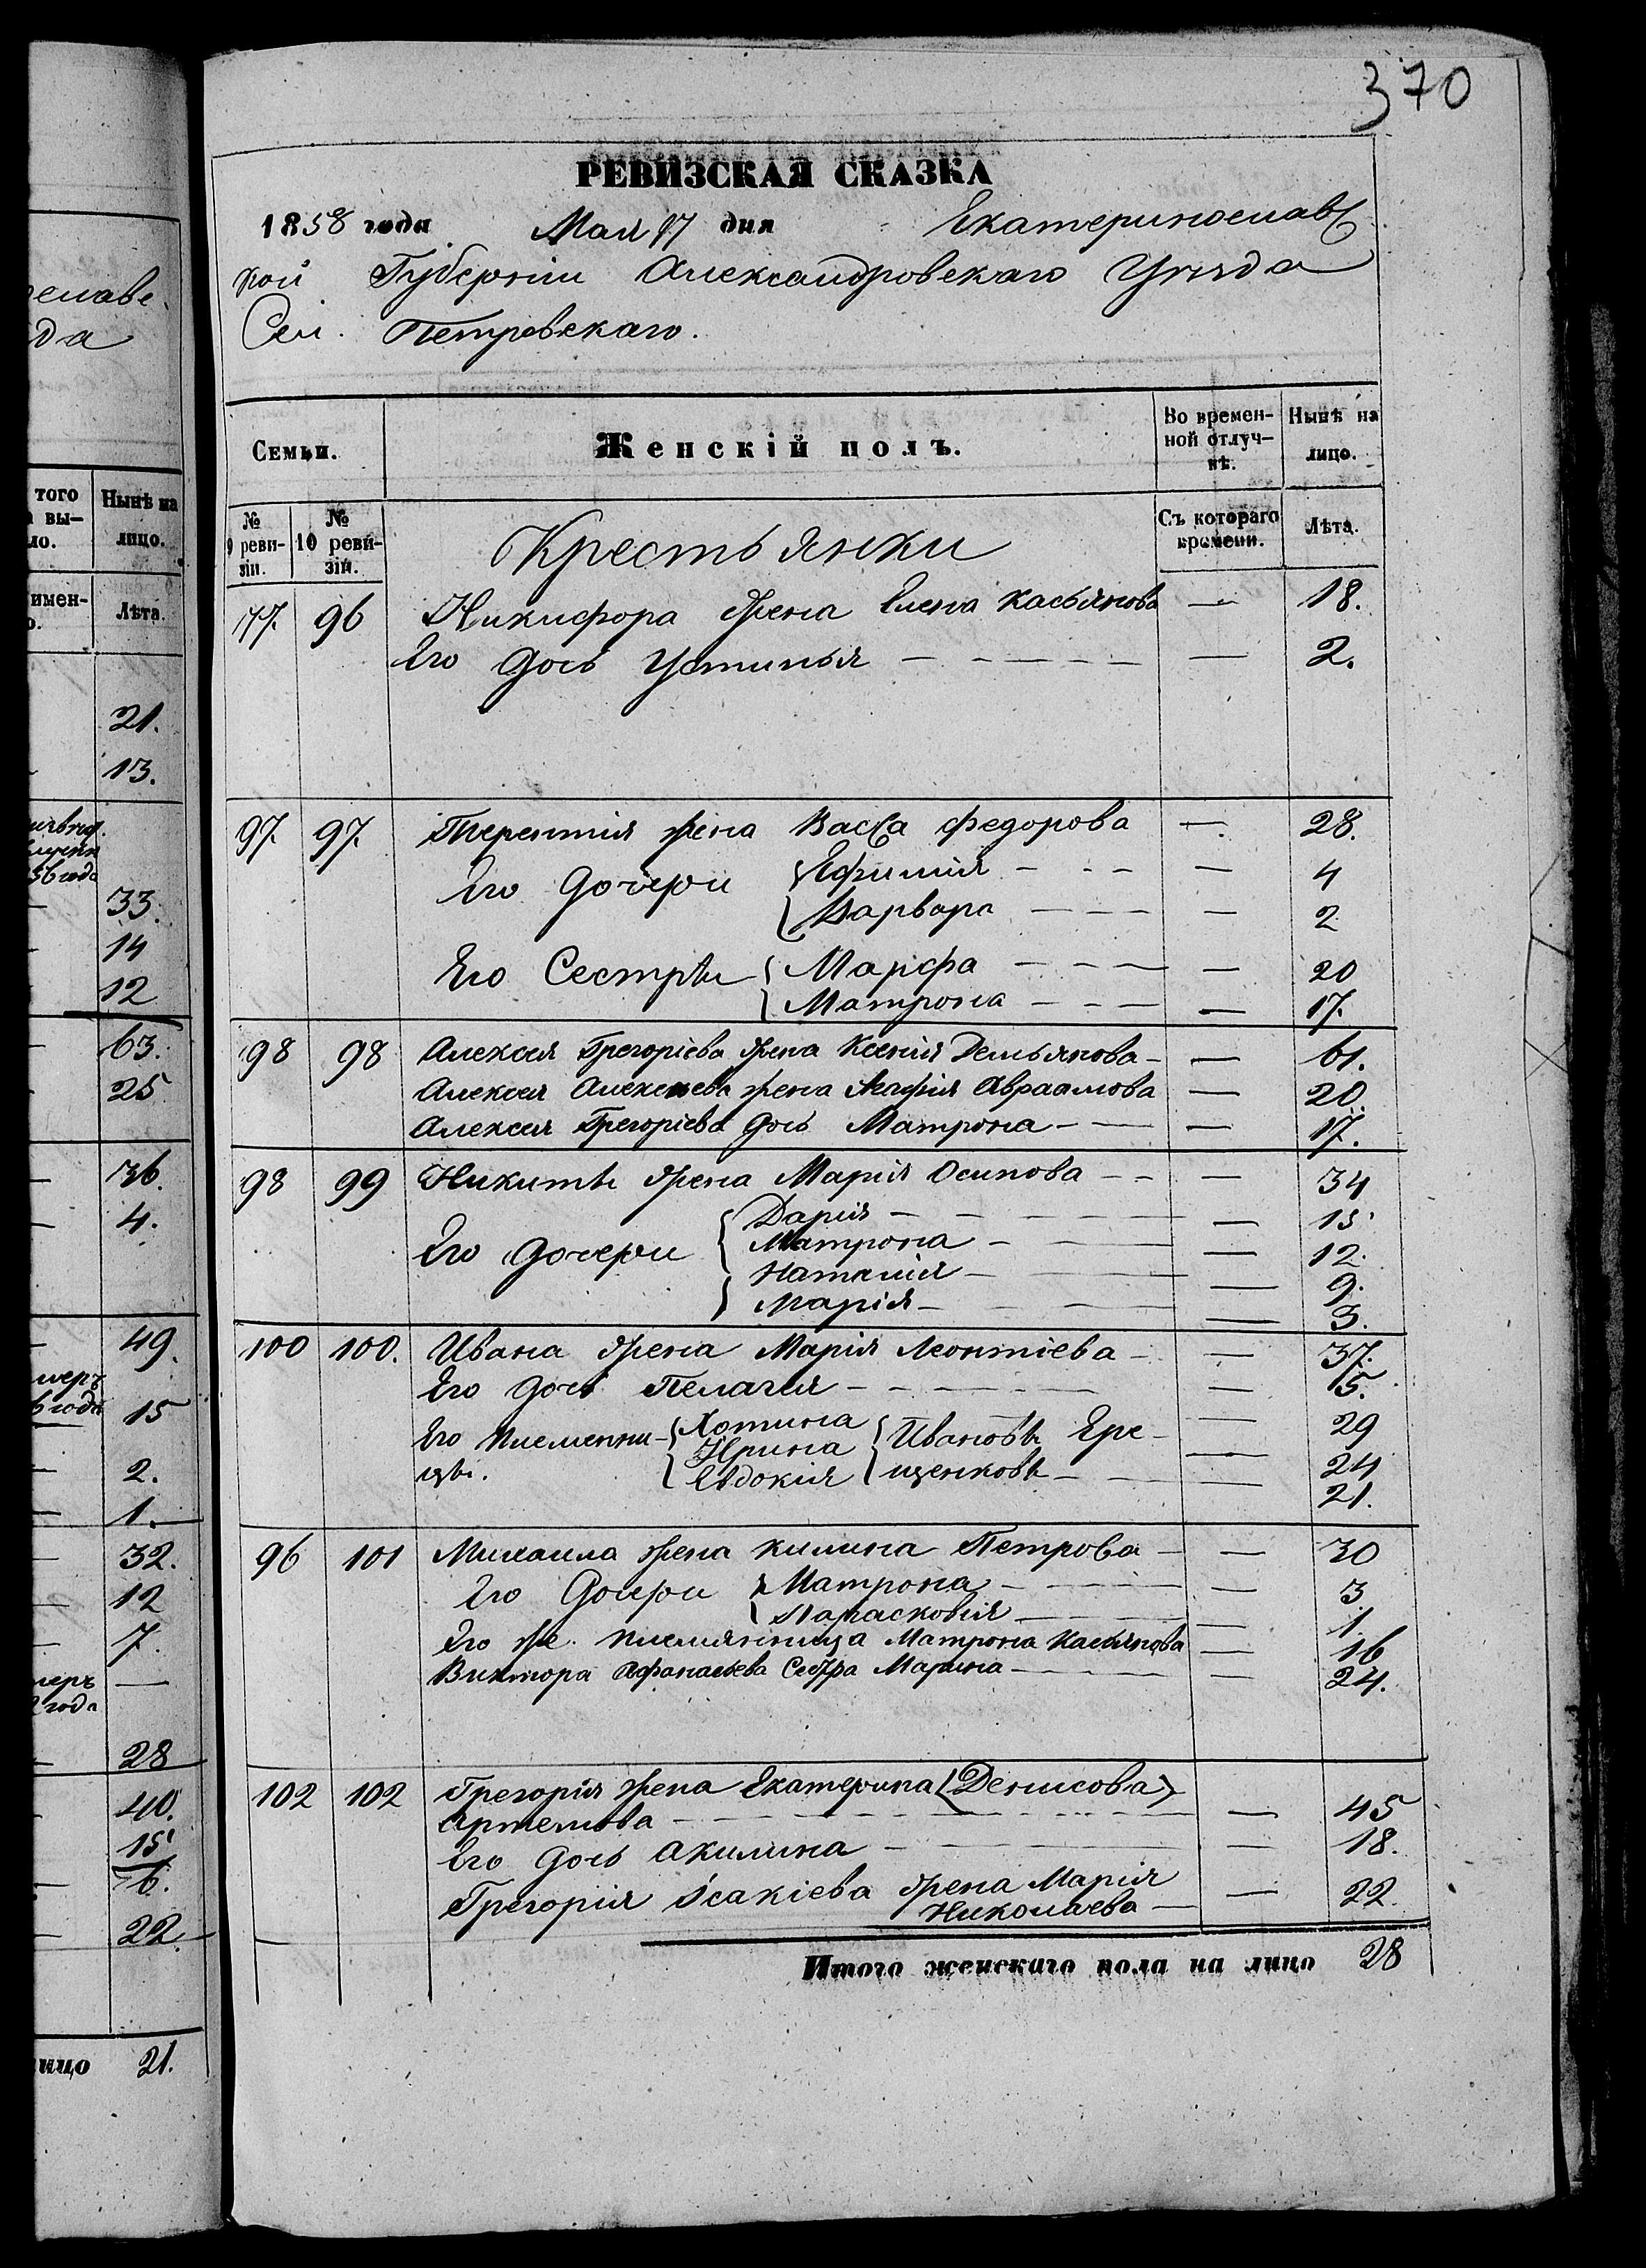 370
РЕВИЗСКАЯ СКАЗКА
1858 года Мая 17 дня Екатеринославс
кой Губерніи Александровскаго Уѣзда
Сел. Петровскаго.
Семьи. Женскій полъ. Во времен- Нынѣ на
ной отлуч- лицо.
кѣ.
№ № Крестьянки Съ котораго Лѣта.
9 реви- 10 реви- времени.
зіи. зіи.
77. 96 Никифора жена Елена Касьянова — 18.
Его дочь Устинья — 2.
97. 97. Терентія жена Васса Федорова — 28.
Его дочери Ефимія — 4
Варвара — 2
Его Сестры Марфа — 20
Матрона — 17.
98 98 Алексея Григоріева жена Ксенія Демьянова — 61.
Алексея Алексеева жена Агафія Авраамова — 20.
Алексея Григоріева дочь Матрона — 17.
98 99 Никиты жена Марія Осипова — 34
Дарія — 15
Его дочери Матрона — 12.
Наталія — 9.
Марія — 3.
100 100. Ивана жена Марія Леонтіева — 37.
Его дочь Пелагея — 15.
Его племянни- Хотина Ивановы Ере- — 29
цы. Ирина щенковы — 24
Евдокія — 21.
96 101 Михаила жена Килина Петрова — 30
Его дочери Матрона — 3
Парасковія — 1.
Его же племянница Матрона Касьянова — 16
Виктора Афанасьева Сестра Марина — 24.
102 102 Григорія жена Екатерина (Денисова)
Артемова — 45
Его дочь Акилина — 18.
Григорія Исакіева жена Марія — 22.
Николаева
Итого женскаго пола на лицо 28
того Нынѣ на
вы- лицо.
ло.
имен- Лѣта.
о.
21.
13.
56 года
33.
14
12
63.
25
36.
4.
49.
умеръ
6 года
15
2.
1.
32.
12
7.
умеръ
года
28
40.
15
6.
22.
лицо 21.